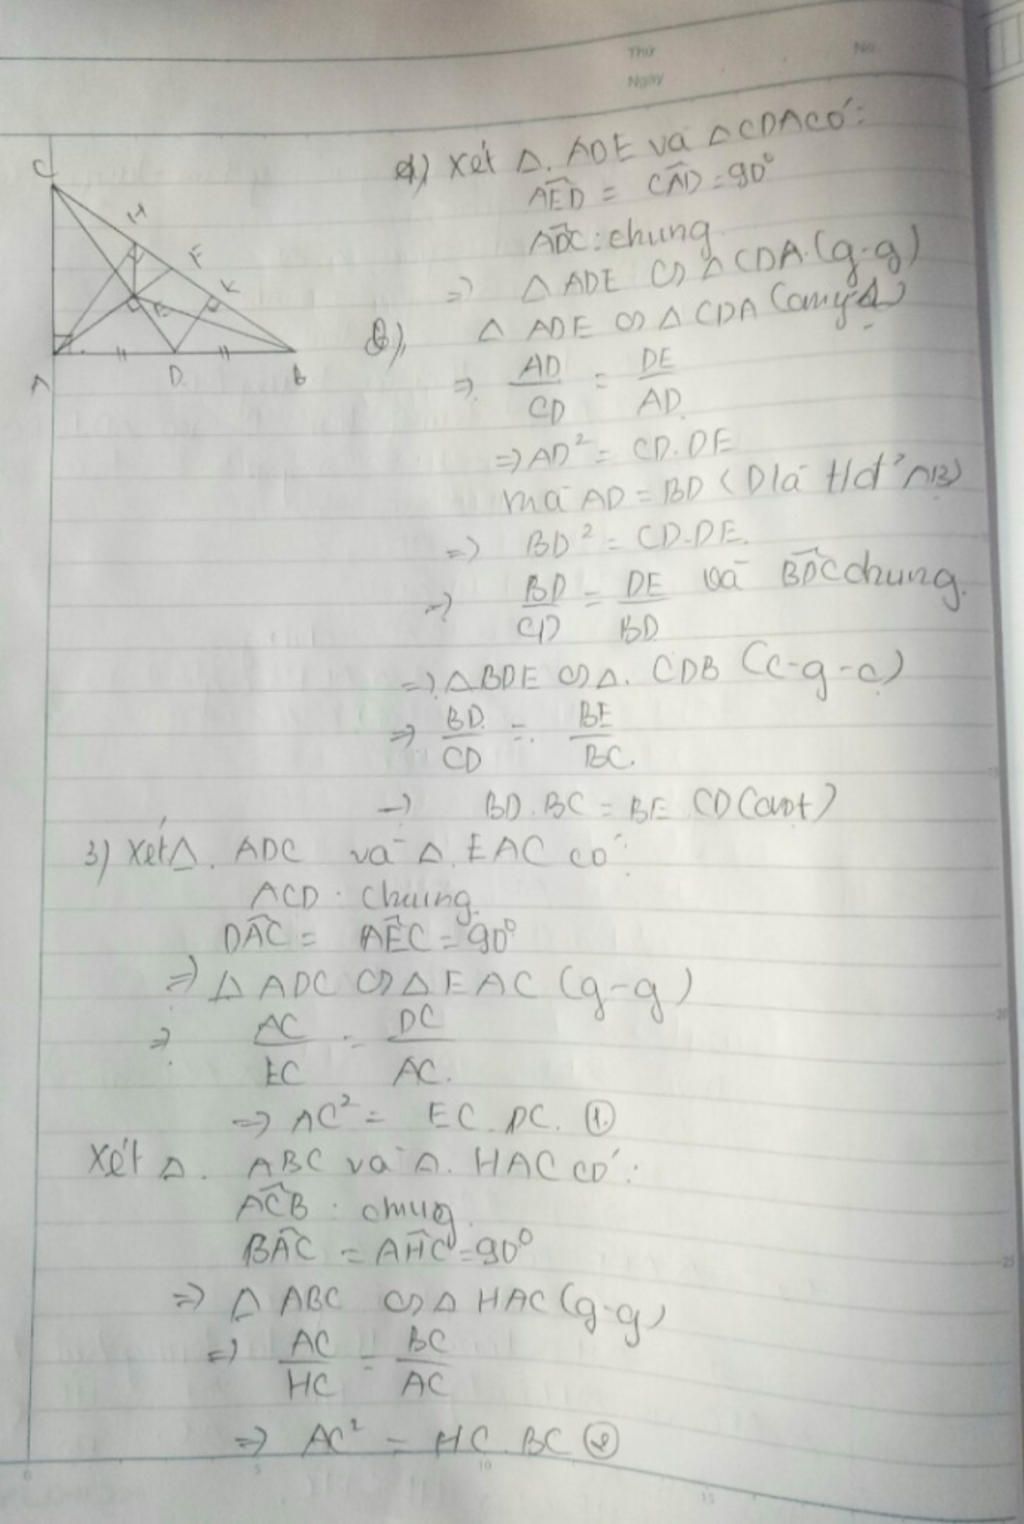 Thứ
No.
Ngày
C
H
F
K
E
A
D
B
a) Xét Δ. ADE và Δ CDA có:
AED = CAD = 90°
ADC : chung
=> Δ ADE ∽ Δ CDA (g-g)
b), Δ ADE ∽ Δ CDA
=> AD/CD = DE/AD
=> AD² = CD.DE
mà AD = BD (D là t/đ AB)
=> BD² = CD.DE.
=> BD/CD = DE/BD và BDC chung.
=> Δ BDE ∽ Δ. CDB (c-g-c)
=> BD/CD = BE/BC.
=> BD.BC = BE CD
3) Xét Δ. ADC và Δ. EAC có:
ACD : chung
DAC = AEC = 90°
=> Δ ADC ∽ Δ EAC (g-g)
=> AC/EC = DC/AC.
=> AC² = EC.DC. (1)
Xét Δ. ABC và Δ. HAC có:
ACB : chung
BAC = AHC = 90°
=> Δ ABC ∽ Δ HAC (g-g)
=> AC/HC = BC/AC
=> AC² = HC.BC (2)
0
5
10
15
20
25